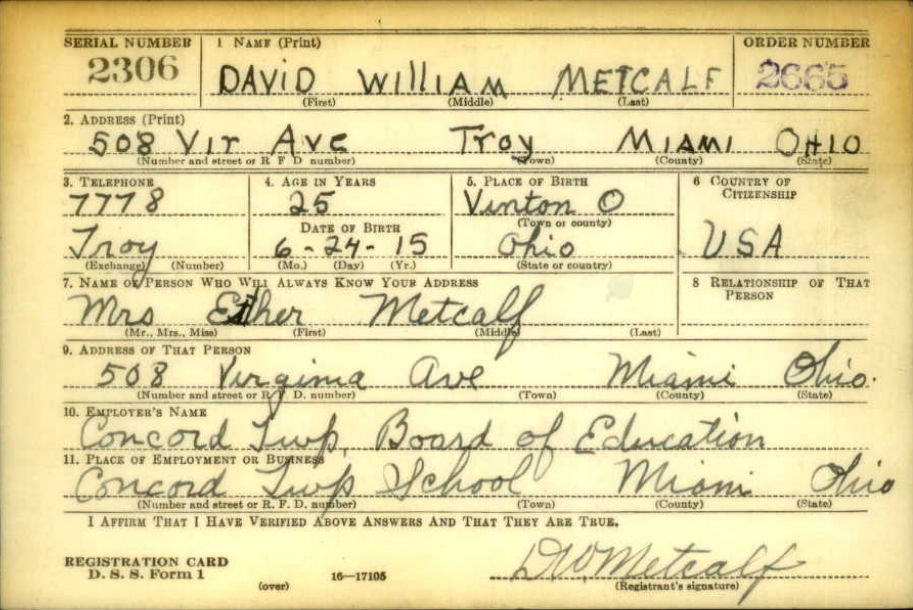 SERIAL NUMBER 1 NAME (Print) ORDER NUMBER
2306 DAVID WILLIAM METCALF 2665
(First) (Middle) (Last)
2. ADDRESS (Print)
508 Vir Ave Troy MIAMI OHIO
(Number and street or R F D number) (Town) (County) (State)
3. TELEPHONE 4. AGE IN YEARS 5. PLACE OF BIRTH 6 COUNTRY OF CITIZENSHIP
7778 25 Vinton O
DATE OF BIRTH (Town or county)
Troy 6-24-15 Ohio USA
(Exchange) (Number) (Mo.) (Day) (Yr.) (State or country)
7. NAME OF PERSON WHO WILL ALWAYS KNOW YOUR ADDRESS 8 RELATIONSHIP OF THAT PERSON
Mrs Esther Metcalf
(Mr., Mrs., Miss) (First) (Middle) (Last)
9. ADDRESS OF THAT PERSON
508 Virginia Ave Miami Ohio.
(Number and street or R. F. D. number) (Town) (County) (State)
10. EMPLOYER'S NAME
Concord Twp. Board of Education
11. PLACE OF EMPLOYMENT OR BUSINESS
Concord Twp School Miami Ohio
(Number and street or R. F. D. number) (Town) (County) (State)
I AFFIRM THAT I HAVE VERIFIED ABOVE ANSWERS AND THAT THEY ARE TRUE.
REGISTRATION CARD DW Metcalf
D. S. S. Form 1 (over) 16—17105 (Registrant's signature)